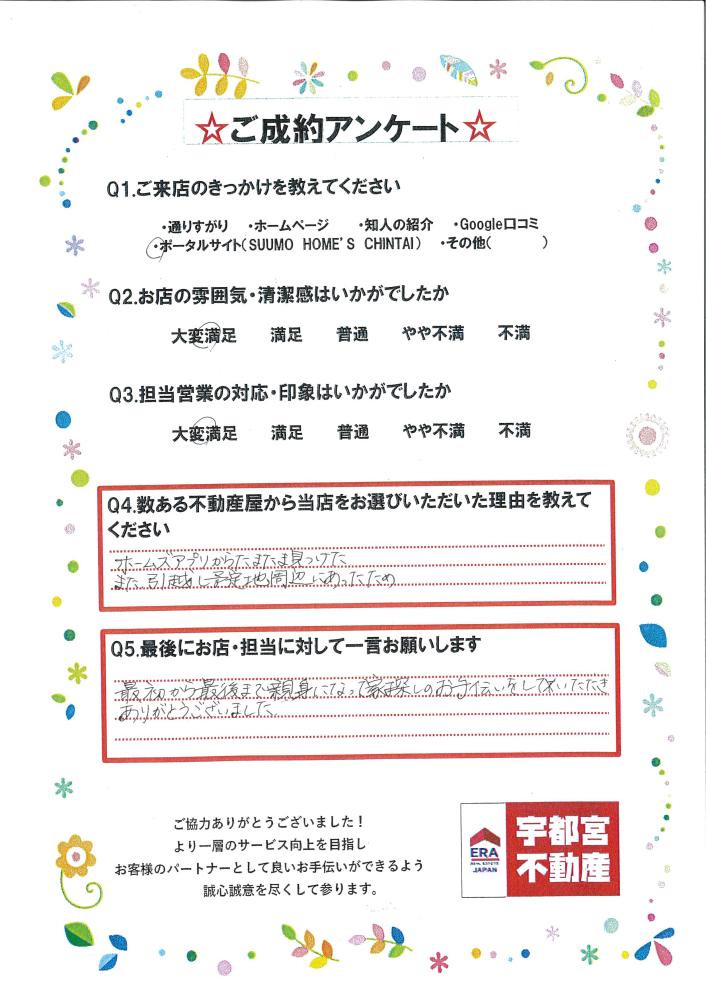 ☆ご成約アンケート☆
Q1.ご来店のきっかけを教えてください
・通りすがり ・ホームページ ・知人の紹介 ・Google口コミ
・ポータルサイト(SUUMO HOME'S CHINTAI) ・その他( )
Q2.お店の雰囲気・清潔感はいかがでしたか
大変満足 満足 普通 やや不満 不満
Q3.担当営業の対応・印象はいかがでしたか
大変満足 満足 普通 やや不満 不満
Q4.数ある不動産屋から当店をお選びいただいた理由を教えて
ください
ホームズアプリからたまたま見つけた
また引越し予定地周辺にあったため
Q5.最後にお店・担当に対して一言お願いします
最初から最後まで親身になって家探しのお手伝いをして頂いただき
ありがとうございました
ご協力ありがとうございました!
より一層のサービス向上を目指し
お客様のパートナーとして良いお手伝いができるよう
誠心誠意を尽くして参ります。
ERA
REAL ESTATE
JAPAN
宇都宮
不動産